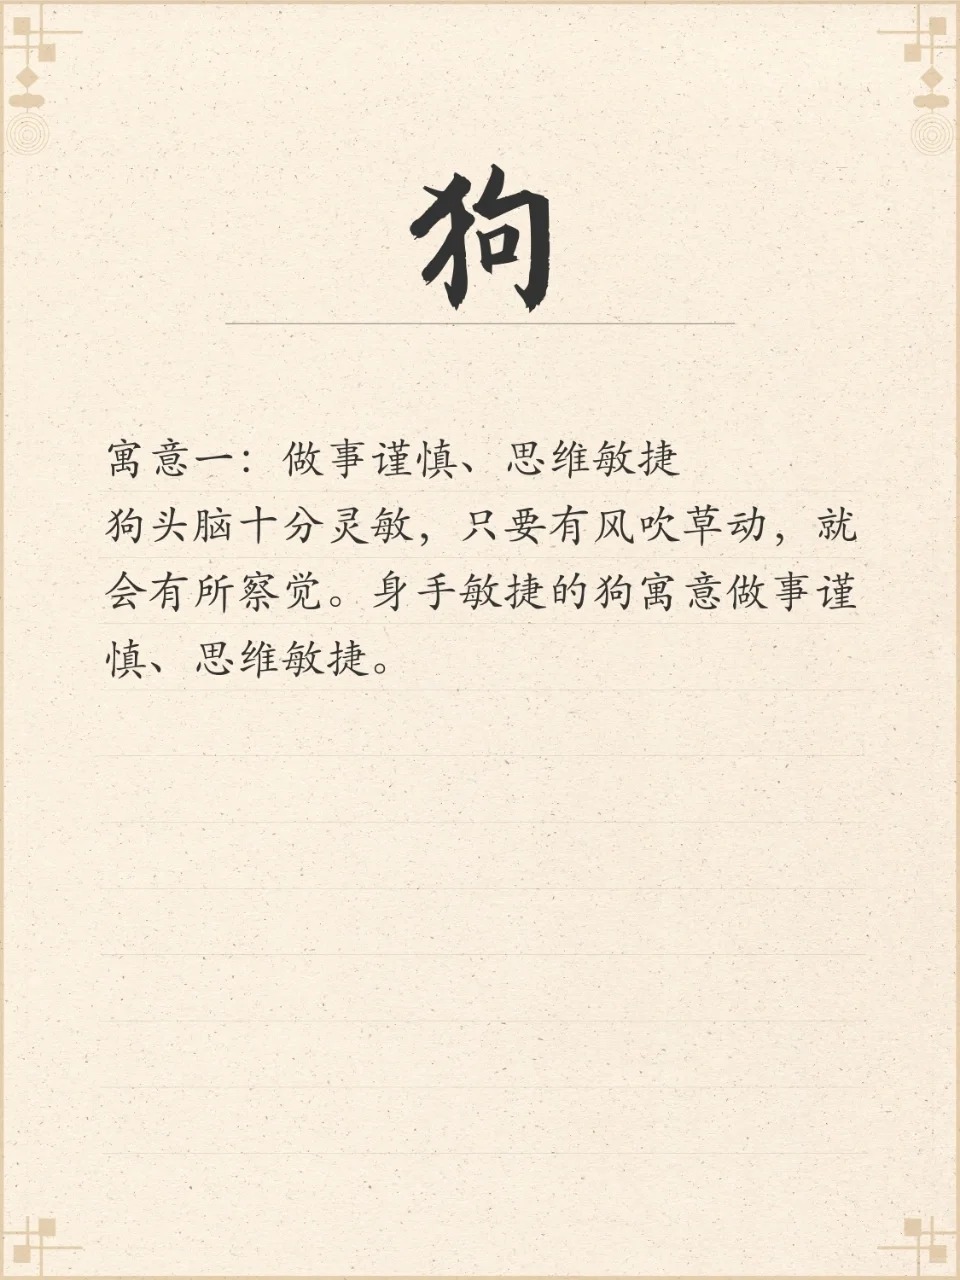 狗
寓意一：做事谨慎、思维敏捷
狗头脑十分灵敏，只要有风吹草动，就
会有所察觉。身手敏捷的狗寓意做事谨
慎、思维敏捷。